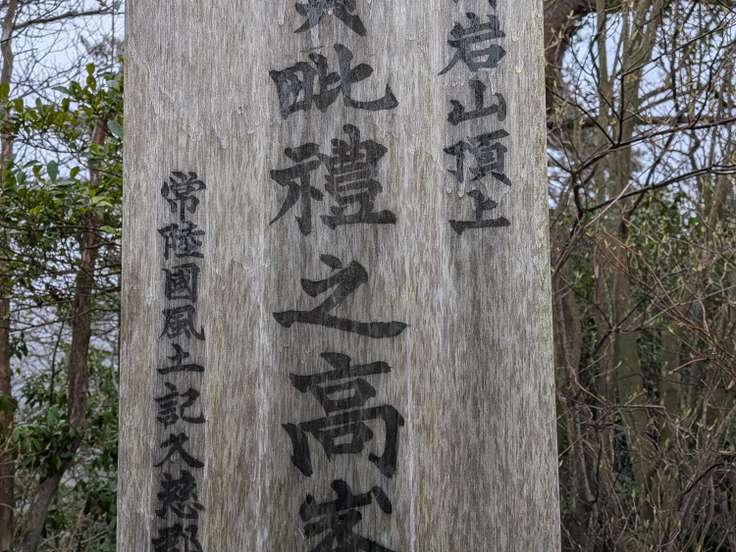 岩山頂上
毗禮之高峯
常陸國風土記久慈郡